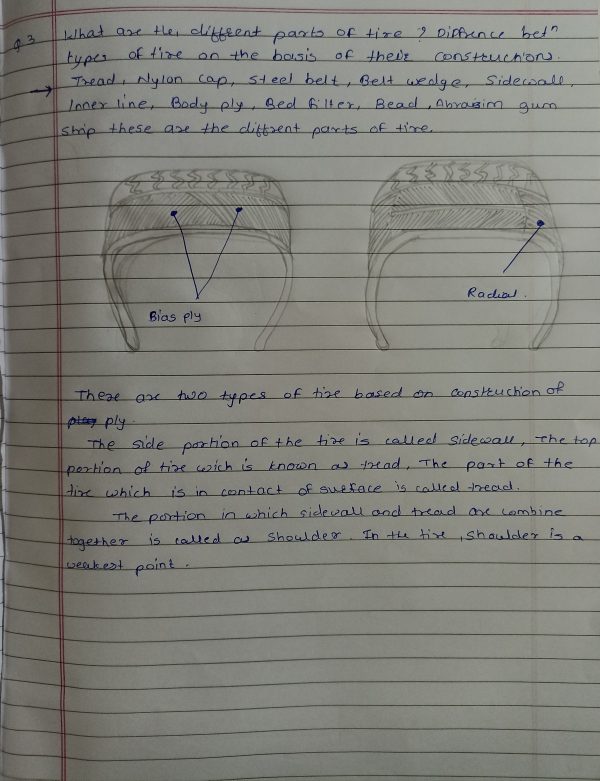 Q 3 What are the, different parts of tire ? Diffrence betn
types of tire on the basis of their construction.
→ Tread, Nylon cap, steel belt, Belt wedge, Sidewall,
Inner line, Body ply, Bed filter, Bead, Abrasion gum
ship these are the diffrent parts of tire.
Bias ply
Radial.
There are two types of tire based on construction of
ply.
The side portion of the tire is called sidewall, The top
portion of tire wich is known as tread, The part of the
tire which is in contact of surface is called tread.
The portion in which sidewall and tread are combine
together is called as shoulder. In the tire, shoulder is a
weakest point.